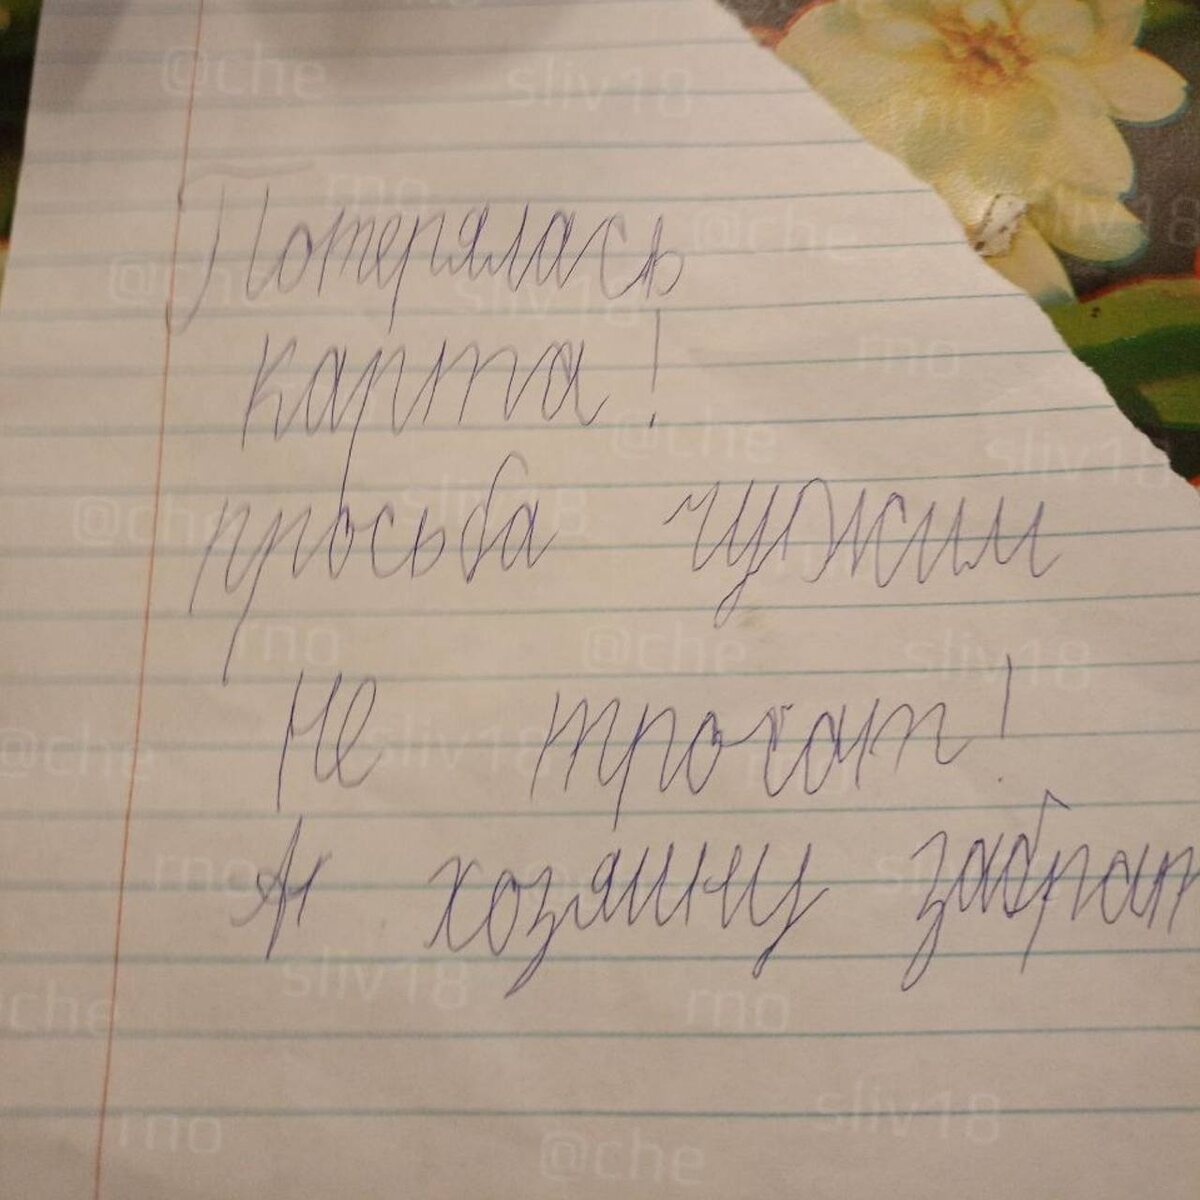 Потерялась
карта!
просьба чужим
не трогат!
А хозяину забрат
@che sliv18 rno